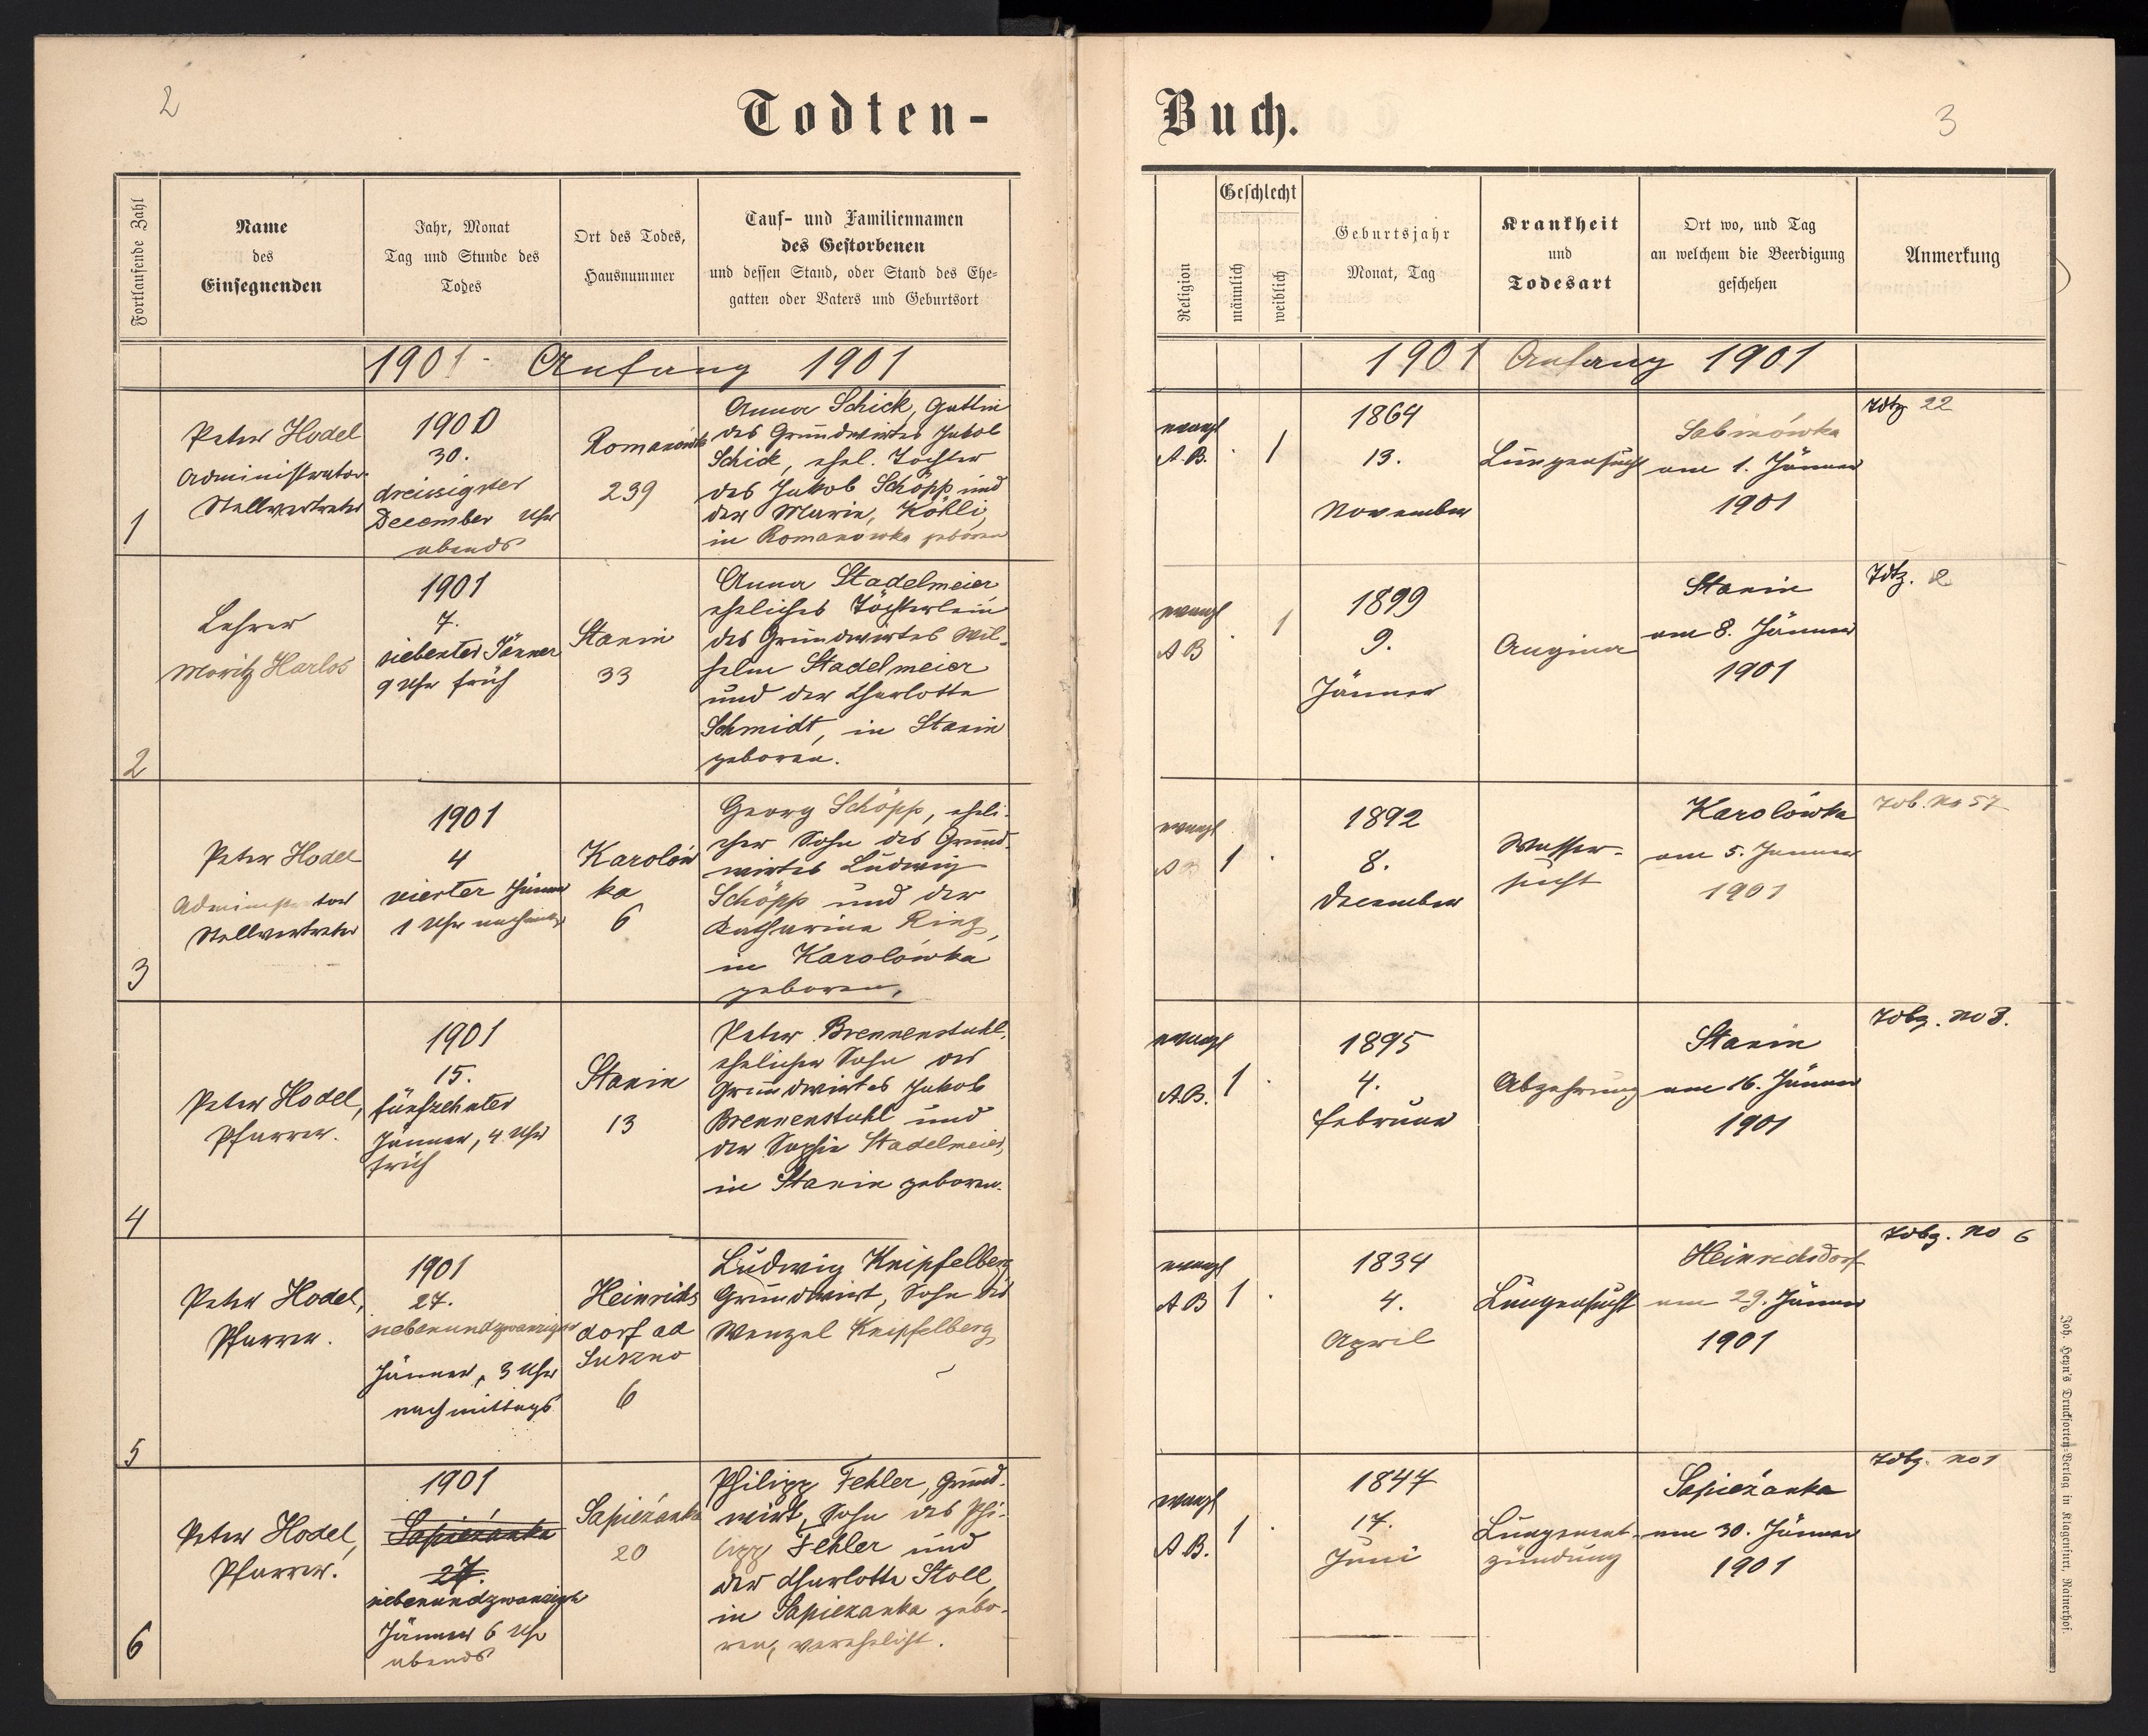 2
Todten-
Fortlaufende Zahl
Name
des
Einsegnenden
Jahr, Monat
Tag und Stunde des
Todes
Ort des Todes,
Hausnummer
Tauf- und Familiennamen
des Gestorbenen
und dessen Stand, oder Stand des Ehe-
gatten oder Vaters und Geburtsort
1901 - Anfang 1901
1
Peter Hodel
Administrator
Stellvertreter
1900
30.
dreissigster
December Uhr
abends
Romanówka
239
Anna Schick, Gattin
des Grundwirtes Jakob
Schick, ehel. Tochter
des Jakob Schöpp und
der Marie, Köhli,
in Romanówka geboren
2
Lehrer
Moritz Harlos
1901
7.
siebenter Jänner
9 Uhr früh
Stanin
33
Anna Stadelmeier
eheliches Töchterlein
des Grundwirtes Wil-
helm Stadelmeier
und der Charlotte
Schmidt, in Stanin
geboren.
3
Peter Hodel
Stellvertreter
1901
4
vierter Jänner
1 Uhr nachmittg
Karolów
ka
6
Georg Schöpp, eheli-
cher Sohn des Grund-
wirtes Ludwig
Schöpp und der
Katharina Ring,
in Karolówka
geboren,
4
Peter Hodel,
Pfarrer.
1901
15.
fünfzehnter
Jänner, 4 Uhr
früh
Stanin
13
Peter Brennenstuhl,
ehelicher Sohn des
Grundwirtes Jakob
Brennenstuhl und
der Sophie Stadelmeier,
in Stanin geboren.
5
Peter Hodel,
Pfarrer.
1901
27.
siebenundzwanzigster
Jänner, 3 Uhr
nachmittags
Heinrichs
dorf ad
Suszno
6
Ludwig Knipfelberg
Grundwirt, Sohn des
Wenzel Knipfelberg
6
Peter Hodel,
Pfarrer.
1901
Sapieżanka
27.
siebenundzwanzigst
Jänner 6 Uhr
abends
Sapieżanka
20
Philipp Fehler, Grund-
wirt, Sohn des Phi-
lipp Fehler und
der Charlotte Stoll,
in Sapieżanka gebo-
ren, verehelicht.
Buch.
3
Religion
Geschlecht
männlich
weiblich
Geburtsjahr
Monat, Tag
Krankheit
und
Todesart
Ort wo, und Tag
an welchem die Beerdigung
geschehen
Anmerkung
1901 Anfang 1901
evangl
A.B.
1
1864
13.
November
Lungensucht
Sabinówka
am 1. Jänner
1901
22
evangl
AB
1
1899
9.
Jänner
Angina
Stanin
am 8. Jänner
1901
2
evangl
AB
1
1892
8.
December
Wasser-
sucht
Karolówka
am 5. Jänner
1901
No 57
evangl
A.B.
1
1895
4.
Februar
Abzehrung
Stanin
am 16. Jänner
1901
No 3.
evangl
AB
1
1834
4.
April
Lungensucht
Heinrichsdorf
am 29. Jänner
1901
No 6
evangl
A.B.
1
1847
17.
Juni
Lungenent-
zündung
Sapieżanka
am 30. Jänner
1901
No 1
Joh. Heyn's Drucksorten-Verlag in Klagenfurt, Rainerhof.